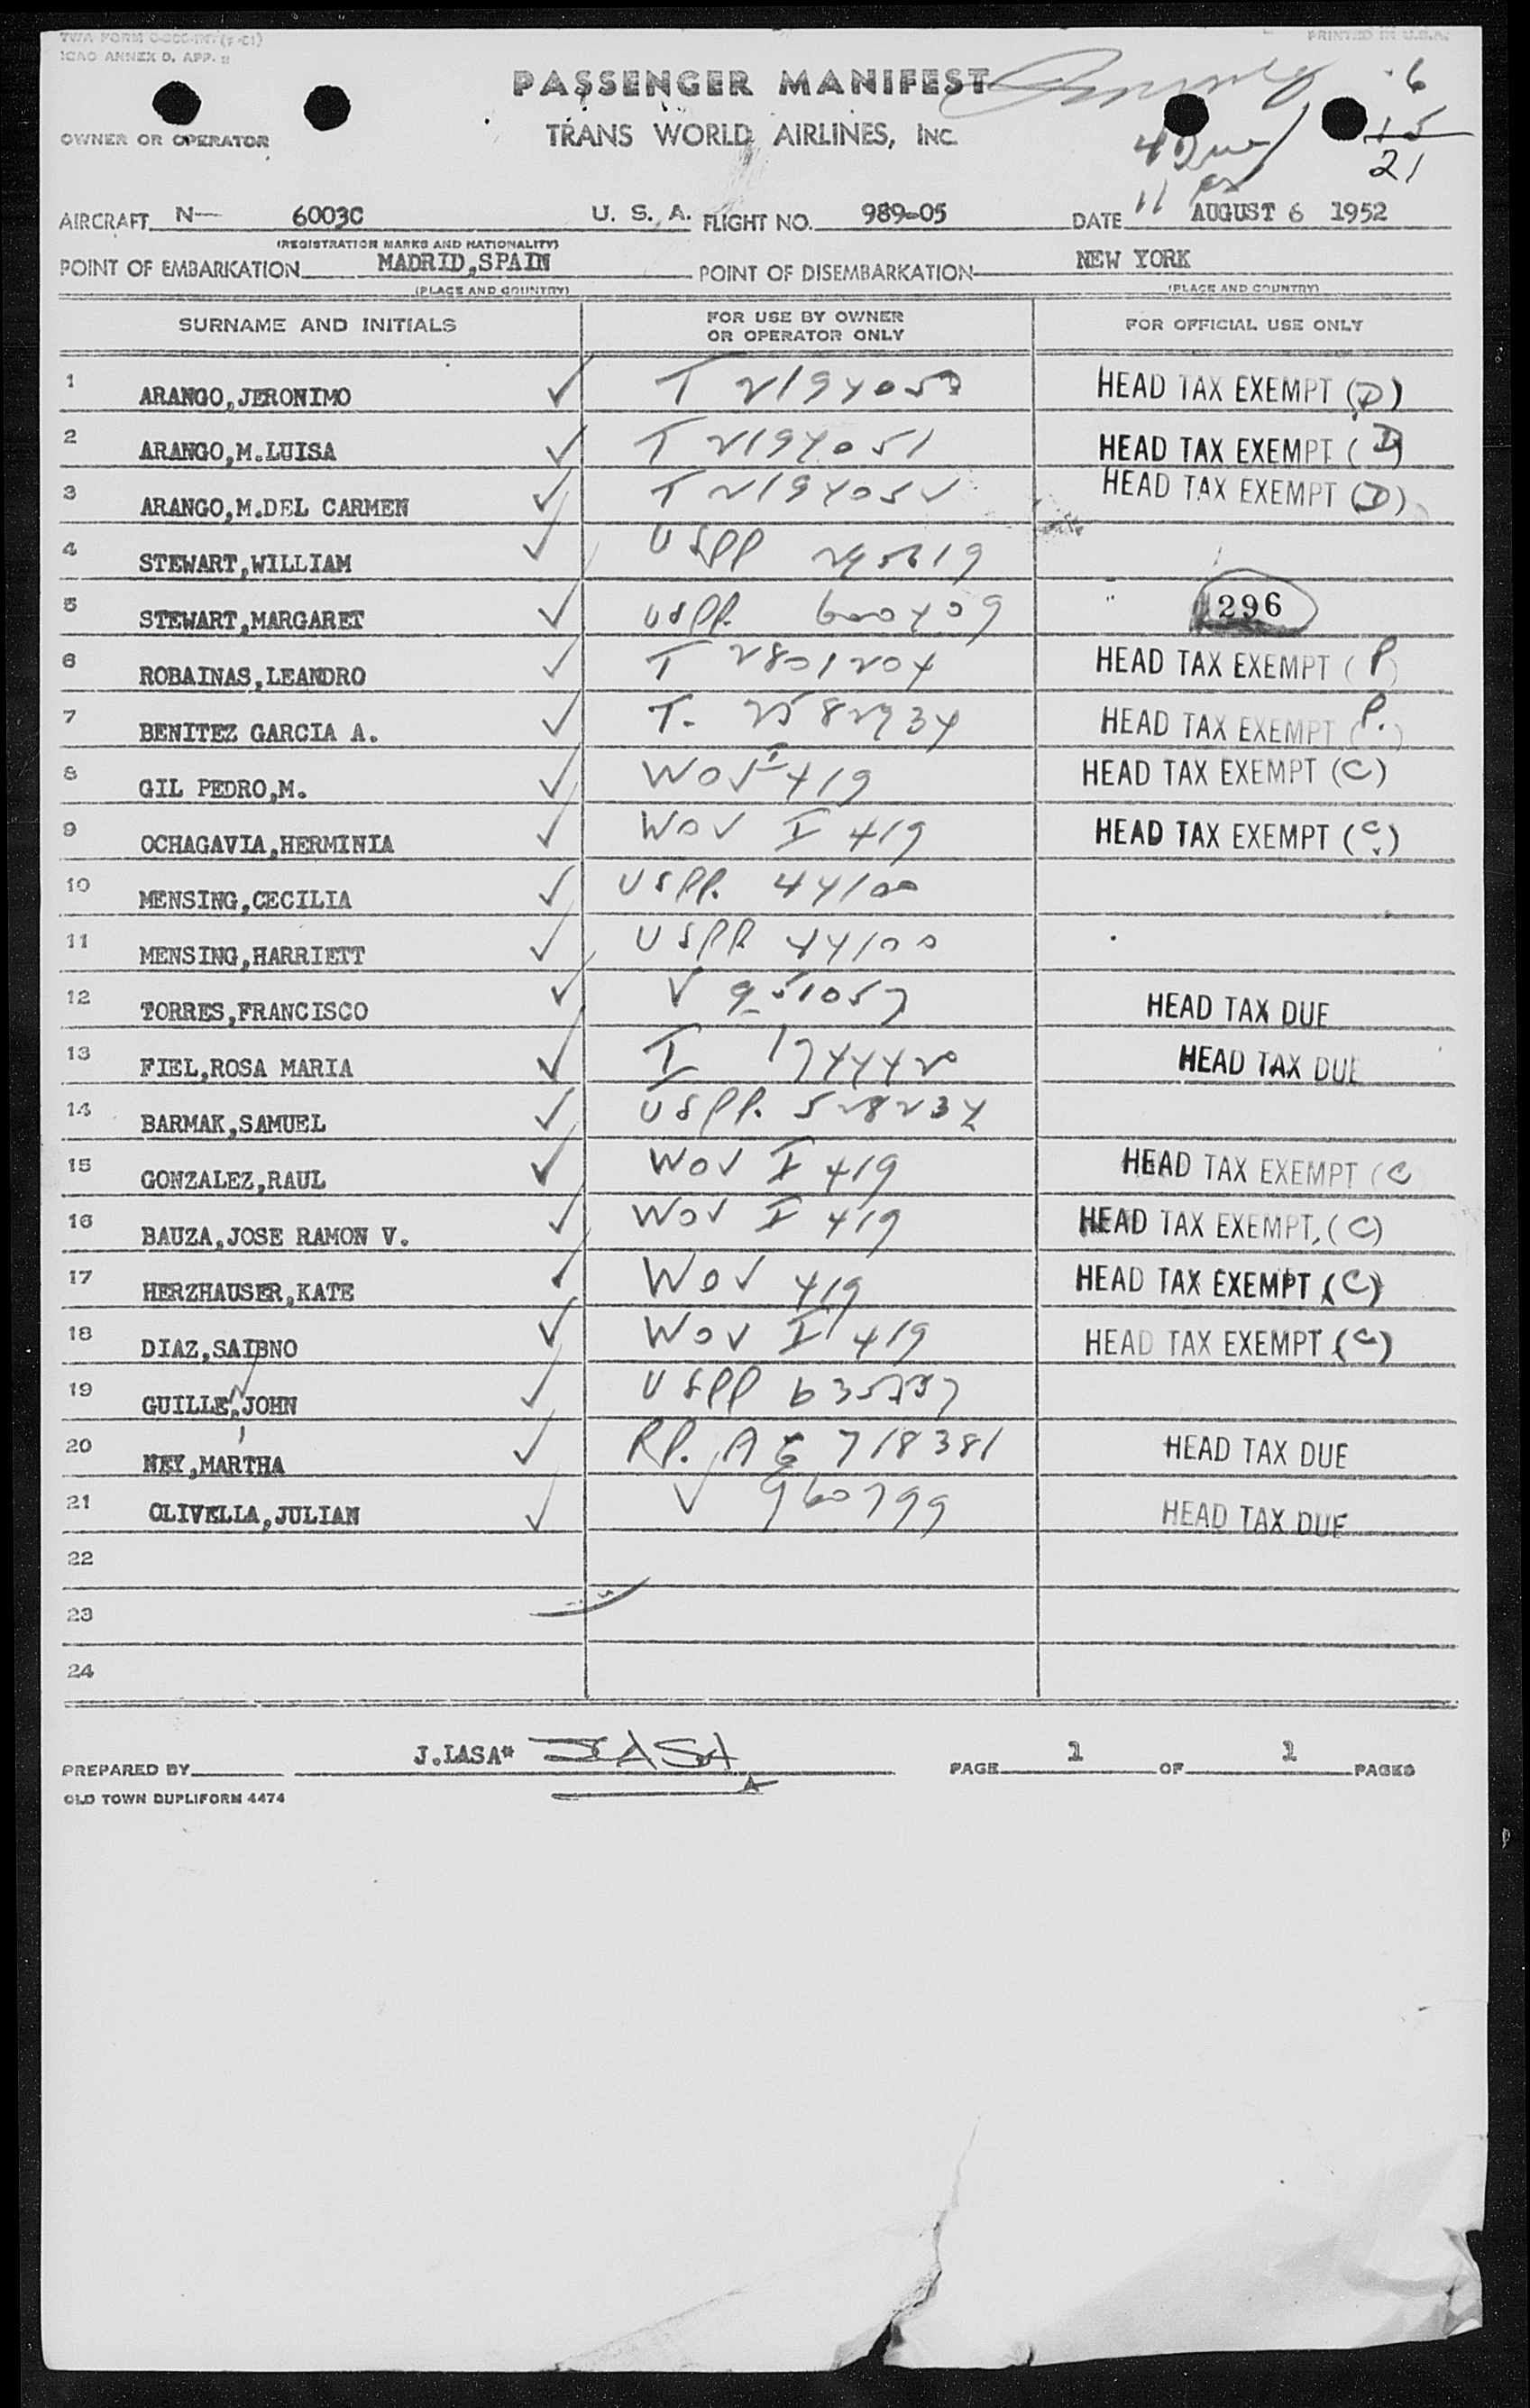 ICAO ANNEX D, APP.
PRINTED IN U.S.A.
PASSENGER MANIFEST
6
OWNER OR OPERATOR
TRANS WORLD AIRLINES, INC.
4 Due
15
21
11 ex
AIRCRAFT N— 6003C U. S. A. FLIGHT NO. 989-05 DATE AUGUST 6 1952
(REGISTRATION MARKS AND NATIONALITY)
POINT OF EMBARKATION MADRID,SPAIN POINT OF DISEMBARKATION NEW YORK
(PLACE AND COUNTRY) (PLACE AND COUNTRY)
SURNAME AND INITIALS FOR USE BY OWNER OR OPERATOR ONLY FOR OFFICIAL USE ONLY
1 ARANGO,JERONIMO T 2194053 HEAD TAX EXEMPT (D)
2 ARANGO,M.LUISA T 2194051 HEAD TAX EXEMPT (D)
3 ARANGO,M.DEL CARMEN T 2194052 HEAD TAX EXEMPT (D)
4 STEWART,WILLIAM USPP 295619
5 STEWART,MARGARET USPP. 600409 296
6 ROBAINAS,LEANDRO T 2801204 HEAD TAX EXEMPT (P)
7 BENITEZ GARCIA A. T. 2582934 HEAD TAX EXEMPT (P.)
8 GIL PEDRO,M. WOV I 419 HEAD TAX EXEMPT (C)
9 OCHAGAVIA,HERMINIA WOV I 419 HEAD TAX EXEMPT (C)
10 MENSING,CECILIA USPP. 44100
11 MENSING,HARRIETT USPP 44100
12 TORRES,FRANCISCO V 951057 HEAD TAX DUE
13 FIEL,ROSA MARIA I 1744420 HEAD TAX DUE
14 BARMAK,SAMUEL USPP. 528234
15 GONZALEZ,RAUL WOV I 419 HEAD TAX EXEMPT (C
16 BAUZA,JOSE RAMON V. WOV I 419 HEAD TAX EXEMPT (C)
17 HERZHAUSER,KATE WOV 419 HEAD TAX EXEMPT (C)
18 DIAZ,SAIBNO WOV I 419 HEAD TAX EXEMPT (C)
19 GUILLE,JOHN USPP
20 NEY,MARTHA RP. AE 718381 HEAD TAX DUE
21 OLIVELLA,JULIAN V 960799 HEAD TAX DUE
22
23
24
PREPARED BY J.LASA* JLASA PAGE 1 OF 1 PAGES
OLD TOWN DUPLIFORM 4474